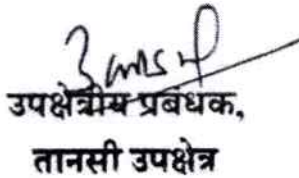 उपक्षेत्रीय प्रबंधक,
तानसी उपक्षेत्र